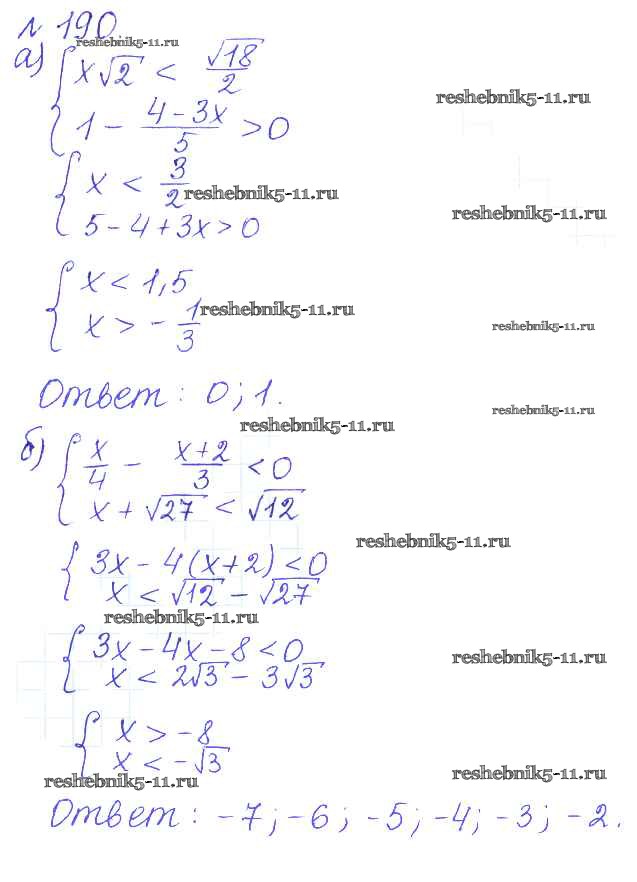 № 190.
reshebnik5-11.ru
а) { x√2 < √18/2
reshebnik5-11.ru
1 - (4-3x)/5 > 0
{ x < 3/2
reshebnik5-11.ru
reshebnik5-11.ru
5-4+3x>0
{ x < 1,5
x > -1/3
reshebnik5-11.ru
reshebnik5-11.ru
Ответ: 0; 1.
reshebnik5-11.ru
reshebnik5-11.ru
б) { x/4 - (x+2)/3 < 0
x + √27 < √12
reshebnik5-11.ru
{ 3x - 4(x+2) < 0
x < √12 - √27
reshebnik5-11.ru
{ 3x - 4x - 8 < 0
reshebnik5-11.ru
x < 2√3 - 3√3
{ x > -8
x < -√3
reshebnik5-11.ru
reshebnik5-11.ru
Ответ: -7; -6; -5; -4; -3; -2.